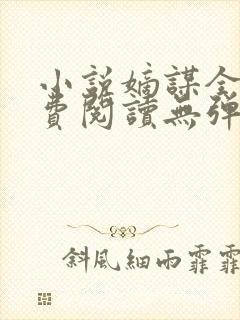 小說嫡謀全
費閱讀無彈
斜風細雨霏霏